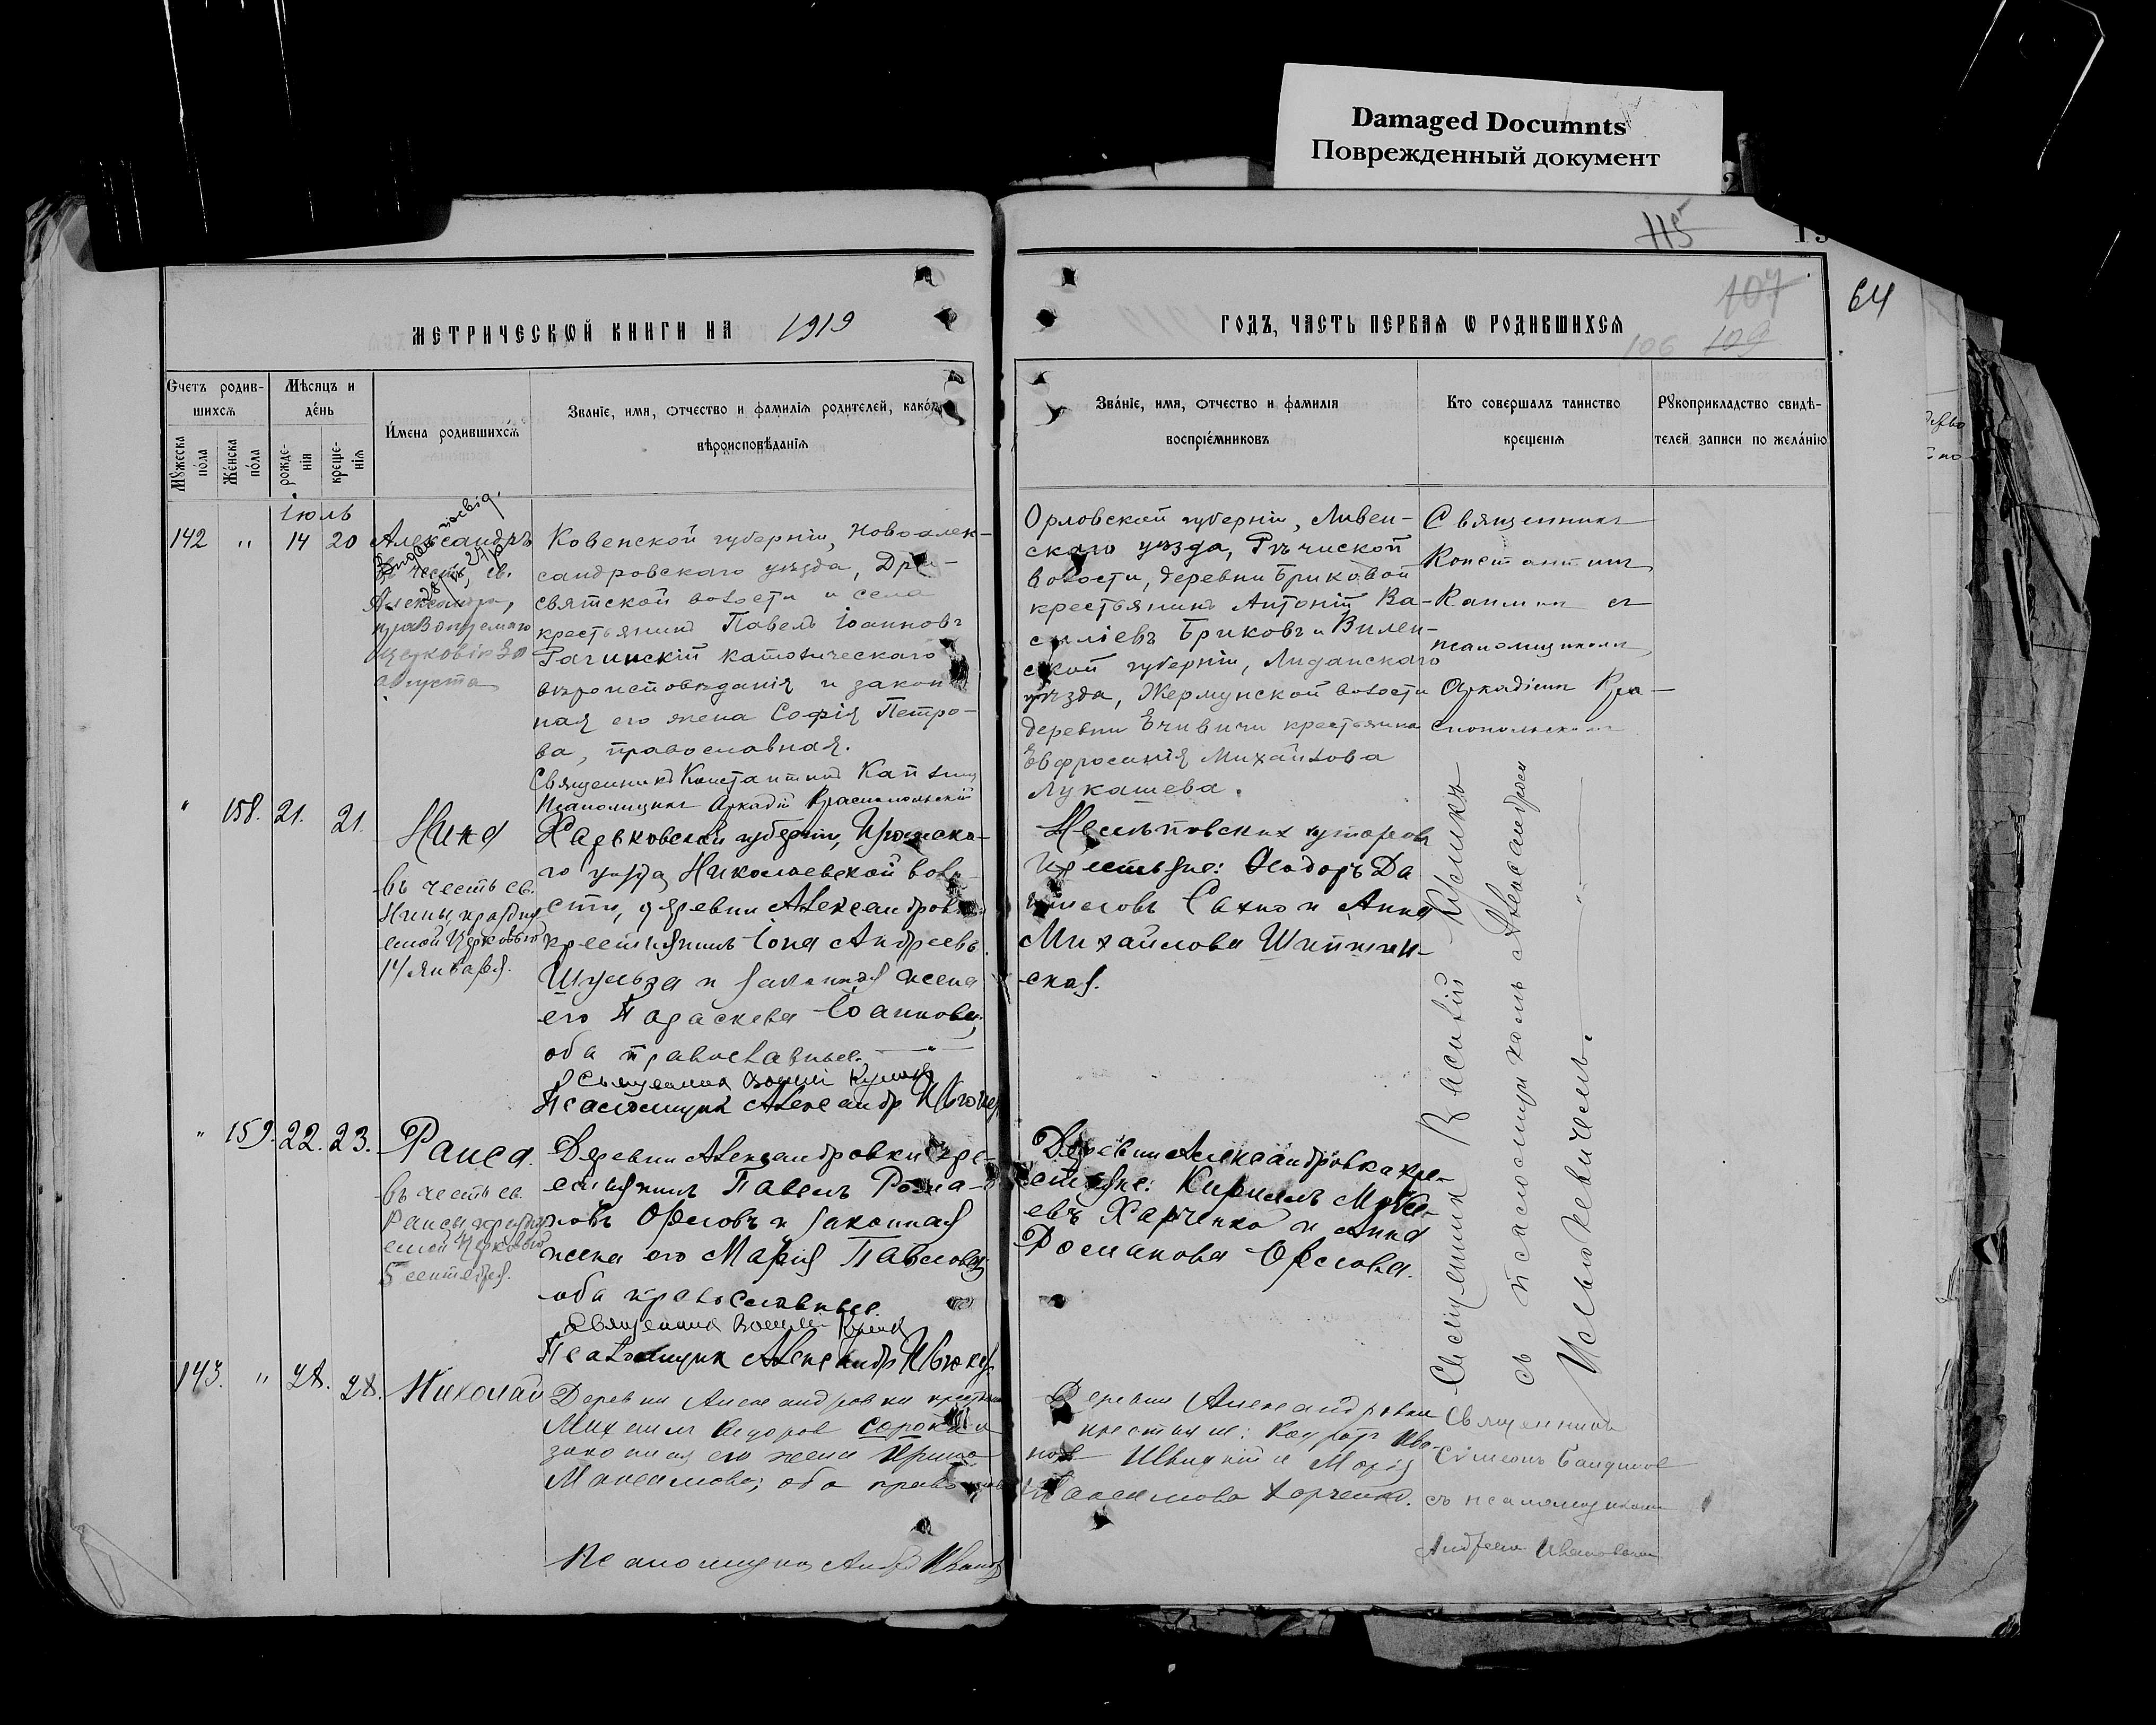 Damaged Documnts
Поврежденный документ
115
107
64
МЕТРИЧЕСКОЙ КНИГИ НА 1919
ГОДЪ, ЧАСТЬ ПЕРВАЯ Ѡ РОДИВШИХСЯ
106 109
Счетъ родив-
шихсѧ
Мѣсяцъ и
де́нь
Мꙋжеска
по́ла
Же́нска
по́ла
рожде-
нія
креще-
нія
И́мена родившихсѧ
Званіе, имя, отчество и фамилія родителей, како́го
вѣроисповѣданія
Зва́ніе, имя, отчество и фамилія
воспріе́мниковъ
Кто совершалъ таинство
крещенія
Рꙋкоприкладство свидѣ-
телей записи по жела́нію
Іюль
142 " 14 20
Александръ
въ честь св.
Александра,
августа
Ковенской губерніи, Новоалек-
сандровскаго уѣзда, Дри-
святской волости и села
крестьянинъ Павелъ Іоанновъ
Рагинскій католическаго
вѣроисповѣданія и закон
ная его жена Софія Петро-
ва, православная.
Священникъ Константинъ
Псаломщикъ Аркадій Краснопольскій
Орловской губерніи, Ливен-
скаго уѣзда, Рѣчиской
волости, деревни Бриковой
крестьянинъ Антоній Ва-
силіевъ Бриковъ и Вилен-
ской губерніи, Лидскаго
уѣзда, Жермунской волости
деревни крестьянка
Евфросинія Михайлова
Лукашева.
Священникъ
Константинъ
съ
псаломщикомъ
Аркадіемъ Кра-
снопольскимъ
" 158. 21. 21.
Нина
въ честь св.
Нины празднуемой Церковью
14 января.
Харьковской губерніи, Изюмска-
го уѣзда Николаевской воло-
сти, деревни Александровки
крестьянинъ Іона Андреевъ
Шульга и законная жена
его Параскева Іоаннова,
оба православные. — " —
Священникъ Василій Куликъ
Псаломщикъ Александр
хуторовъ
крестьяне: Ѳеодоръ Да
ниловъ Сахно и Анна
Михайлова
ская.
Священникъ Василій Куликъ
съ псаломщикомъ Александромъ
— " —
" 159. 22. 23.
Раиса.
въ честь св.
Раисы празднуемой Церковью
5 сентября.
Деревни Александровки кре-
стьянинъ Павелъ Рома-
новъ Орловъ и законная
жена его Марія Павлова
оба православные.
Священникъ Василій Куликъ
Псаломщикъ Александр
Деревни Александровка кре-
стьяне: Кириллъ Моисе-
евъ Харченко и Анна
Романова Орлова.
143. " 28. 28.
Николай
Деревни Александровки крестьянин
Михаилъ Ѳедоров Сорока и
законная его жена Ирина
Максимова; оба правосл
Псаломщикъ Андр
Деревни Александровки
крестьяне: Ива-
нов и Марія
Максимова Харченко.
Священникъ
Симеонъ
съ псаломщикомъ
Андреемъ